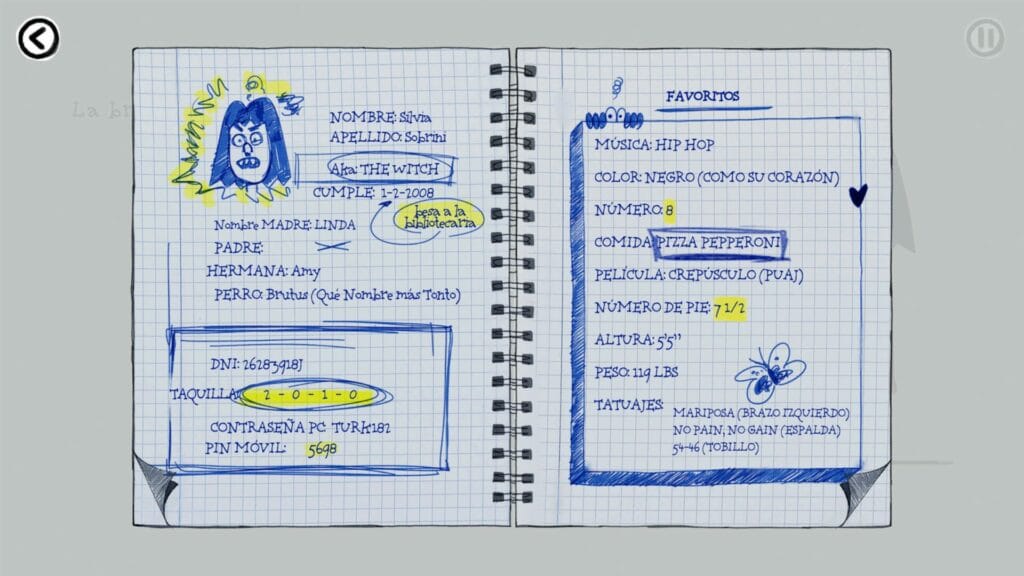 La br
NOMBRE: Silvia
APELLIDO: Sobrini
Aka: THE WITCH
CUMPLE: 1-2-2008
besa a la
bibliotecaria
Nombre MADRE: LINDA
PADRE:
HERMANA: Amy
PERRO: Brutus (Qué Nombre más Tonto)
DNI: 26283918J
TAQUILLA: 2 - 0 - 1 - 0
CONTRASEÑA PC: TURK182
PIN MÓVIL: 5698
FAVORITOS
MÚSICA: HIP HOP
COLOR: NEGRO (COMO SU CORAZÓN)
NÚMERO: 8
COMIDA: PIZZA PEPPERONI
PELÍCULA: CREPÚSCULO (PUAJ)
NÚMERO DE PIE: 7 1/2
ALTURA: 5'5"
PESO: 119 LBS
TATUAJES:
MARIPOSA (BRAZO IZQUIERDO)
NO PAIN, NO GAIN (ESPALDA)
54-46 (TOBILLO)